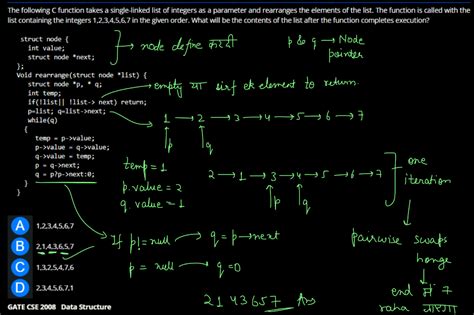 The following C function takes a single-linked list of integers as a parameter and rearranges the elements of the list. The function is called with the
list containing the integers 1,2,3,4,5,6,7 in the given order. What will be the contents of the list after the function completes execution?
struct node {
int value;
struct node *next;
};
→ node define करदी
p & q → Node
pointer
Void rearrange(struct node *list) {
struct node *p, * q;
int temp;
if(!list|| !list-> next) return;
→ empty या sirf ek element to return
p=list; q=list->next;
→ 1 → 2 → 3 → 4 → 5 → 6 → 7
p q
while(q)
{
temp = p->value;
p->value = q->value;
q->value = temp;
p = q->next;
q = p?p->next:0;
}
}
temp = 1
p.value = 2
q.value = 1
2 → 1 → 3 → 4 → 5 → 6 → 7
p q
one
iteration
pairwise swaps
honge
end में 7
raha जाएगा
A 1,2,3,4,5,6,7
B 2,1,4,3,6,5,7
C 1,3,2,5,4,7,6
D 2,3,4,5,6,7,1
→ If p != null → q = p→next
p = null → q = 0
2 1 4 3 6 5 7 Ans
GATE CSE 2008 Data Structure